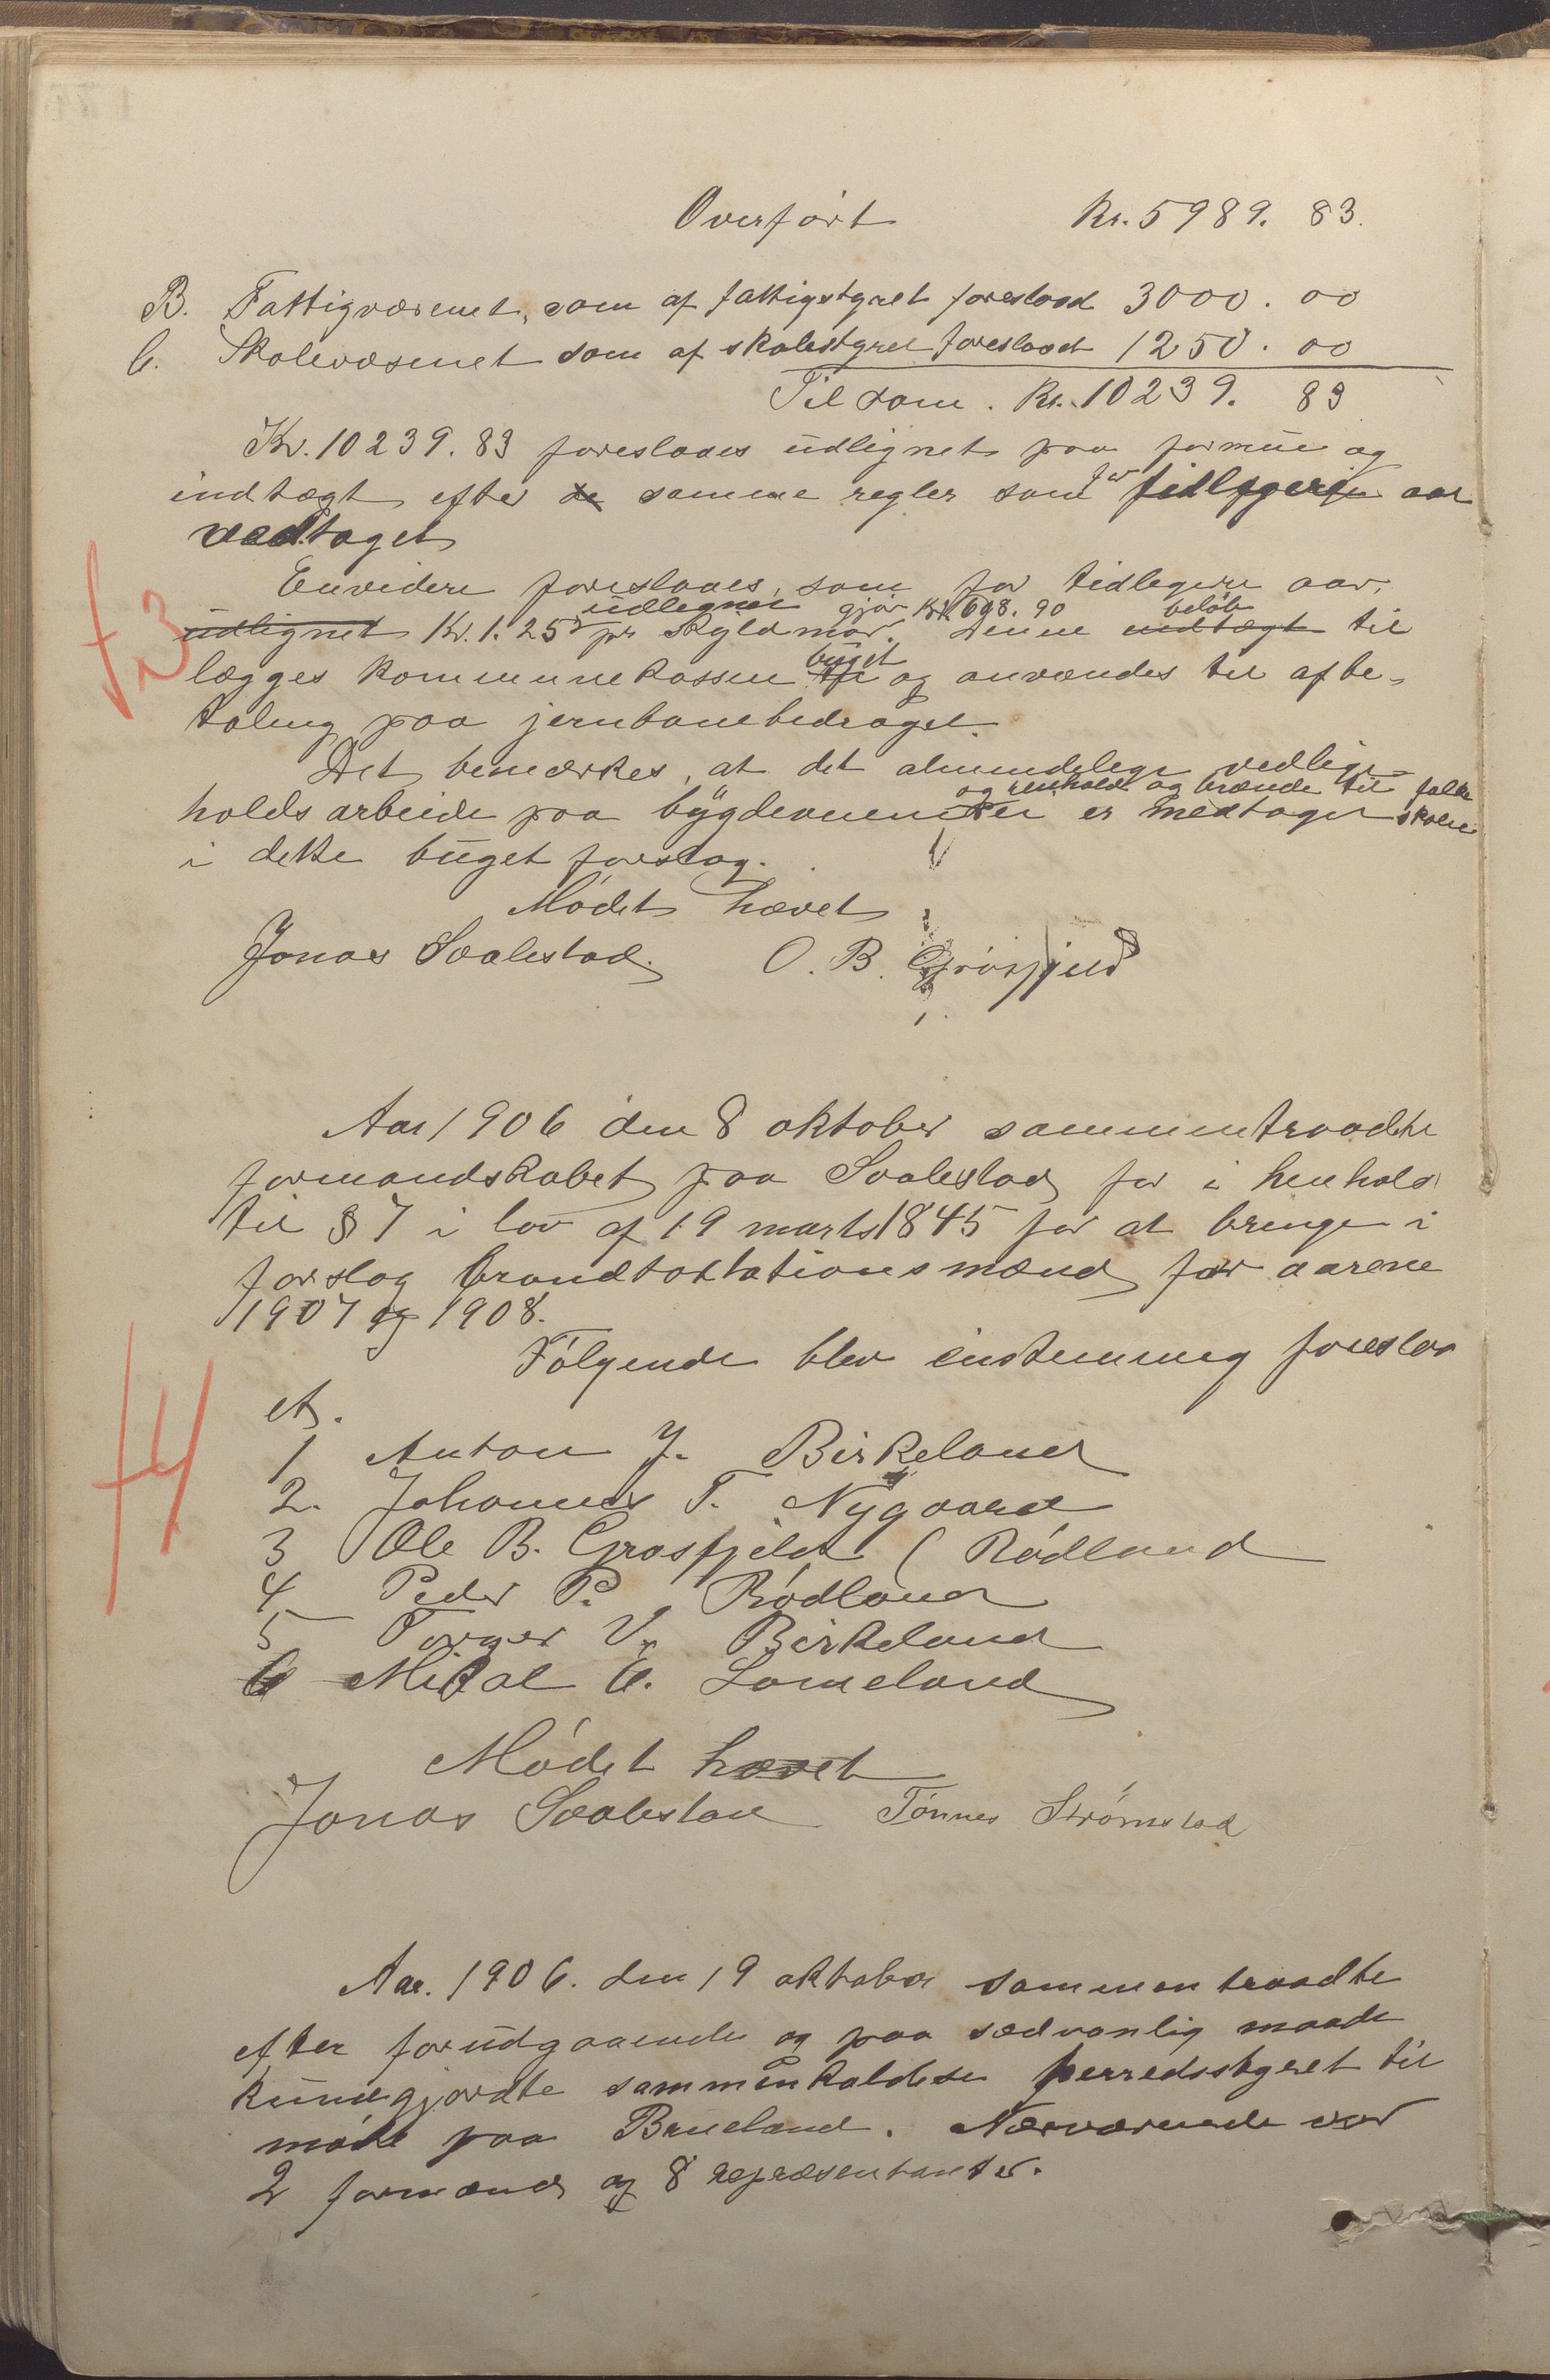 Overført Kr. 5989. 83.
B. Fattigvæsenet, som af fattigstyret foreslaad 3000. 00
C. Skolevæsenet som af skolestyret foreslaaet 1250. 00
Tilsam. Kr. 10239. 83
Kr. 10239. 83 foreslaaes udlignet paa formue og
indtægt efter de samme regler som for tidligere aar
vedtaget
Envidere foreslaaes, som for tidligere aar,
udlignes gjør Kr. 698. 90 beløb
udlignet Kr. 1. 25 pr Skyldmar. Denne indtægt til
buget
lægges kommunekassen og anvendes til afbe-
taling paa jernbanebidraget.
Det bemærkes, at det almindelige vedlige-
og renhold og brænde til folke
holdsarbeide paa bygdeveiene er medtaget skolen
i dette buget forslag.
Mødet hævet
Jonas Svalestad. O. B. Grøsfjeld
73
Aar 1906 den 8 oktober sammentraadte
formandskabet paa Svalestad for i henhold
til § 7 i lov af 19 marts 1845 for at bringe i
forslag brandtaxtationsmænd for aarene
1907 og 1908.
Følgende blev enstemmig foreslaa
et.
74
1 Anton J. Birkeland
2. Johannes T. Nygaard
3 Ole B. Grøsfjeld (Rødland
4 Peder P. Rødland
5 Torger V. Birkeland
6 Mikal E. Lomeland
Mødet hævet
Jonas Svalestad Tønnes Strømstad
Aar. 1906. den 19 oktober sammentraadte
efter forudgaaende og paa sædvanlig maade
kundgjordte sammenkaldese herredsstyret til
møde paa Brueland. Nærværende var
2 formænd og 8 repræsentanter.